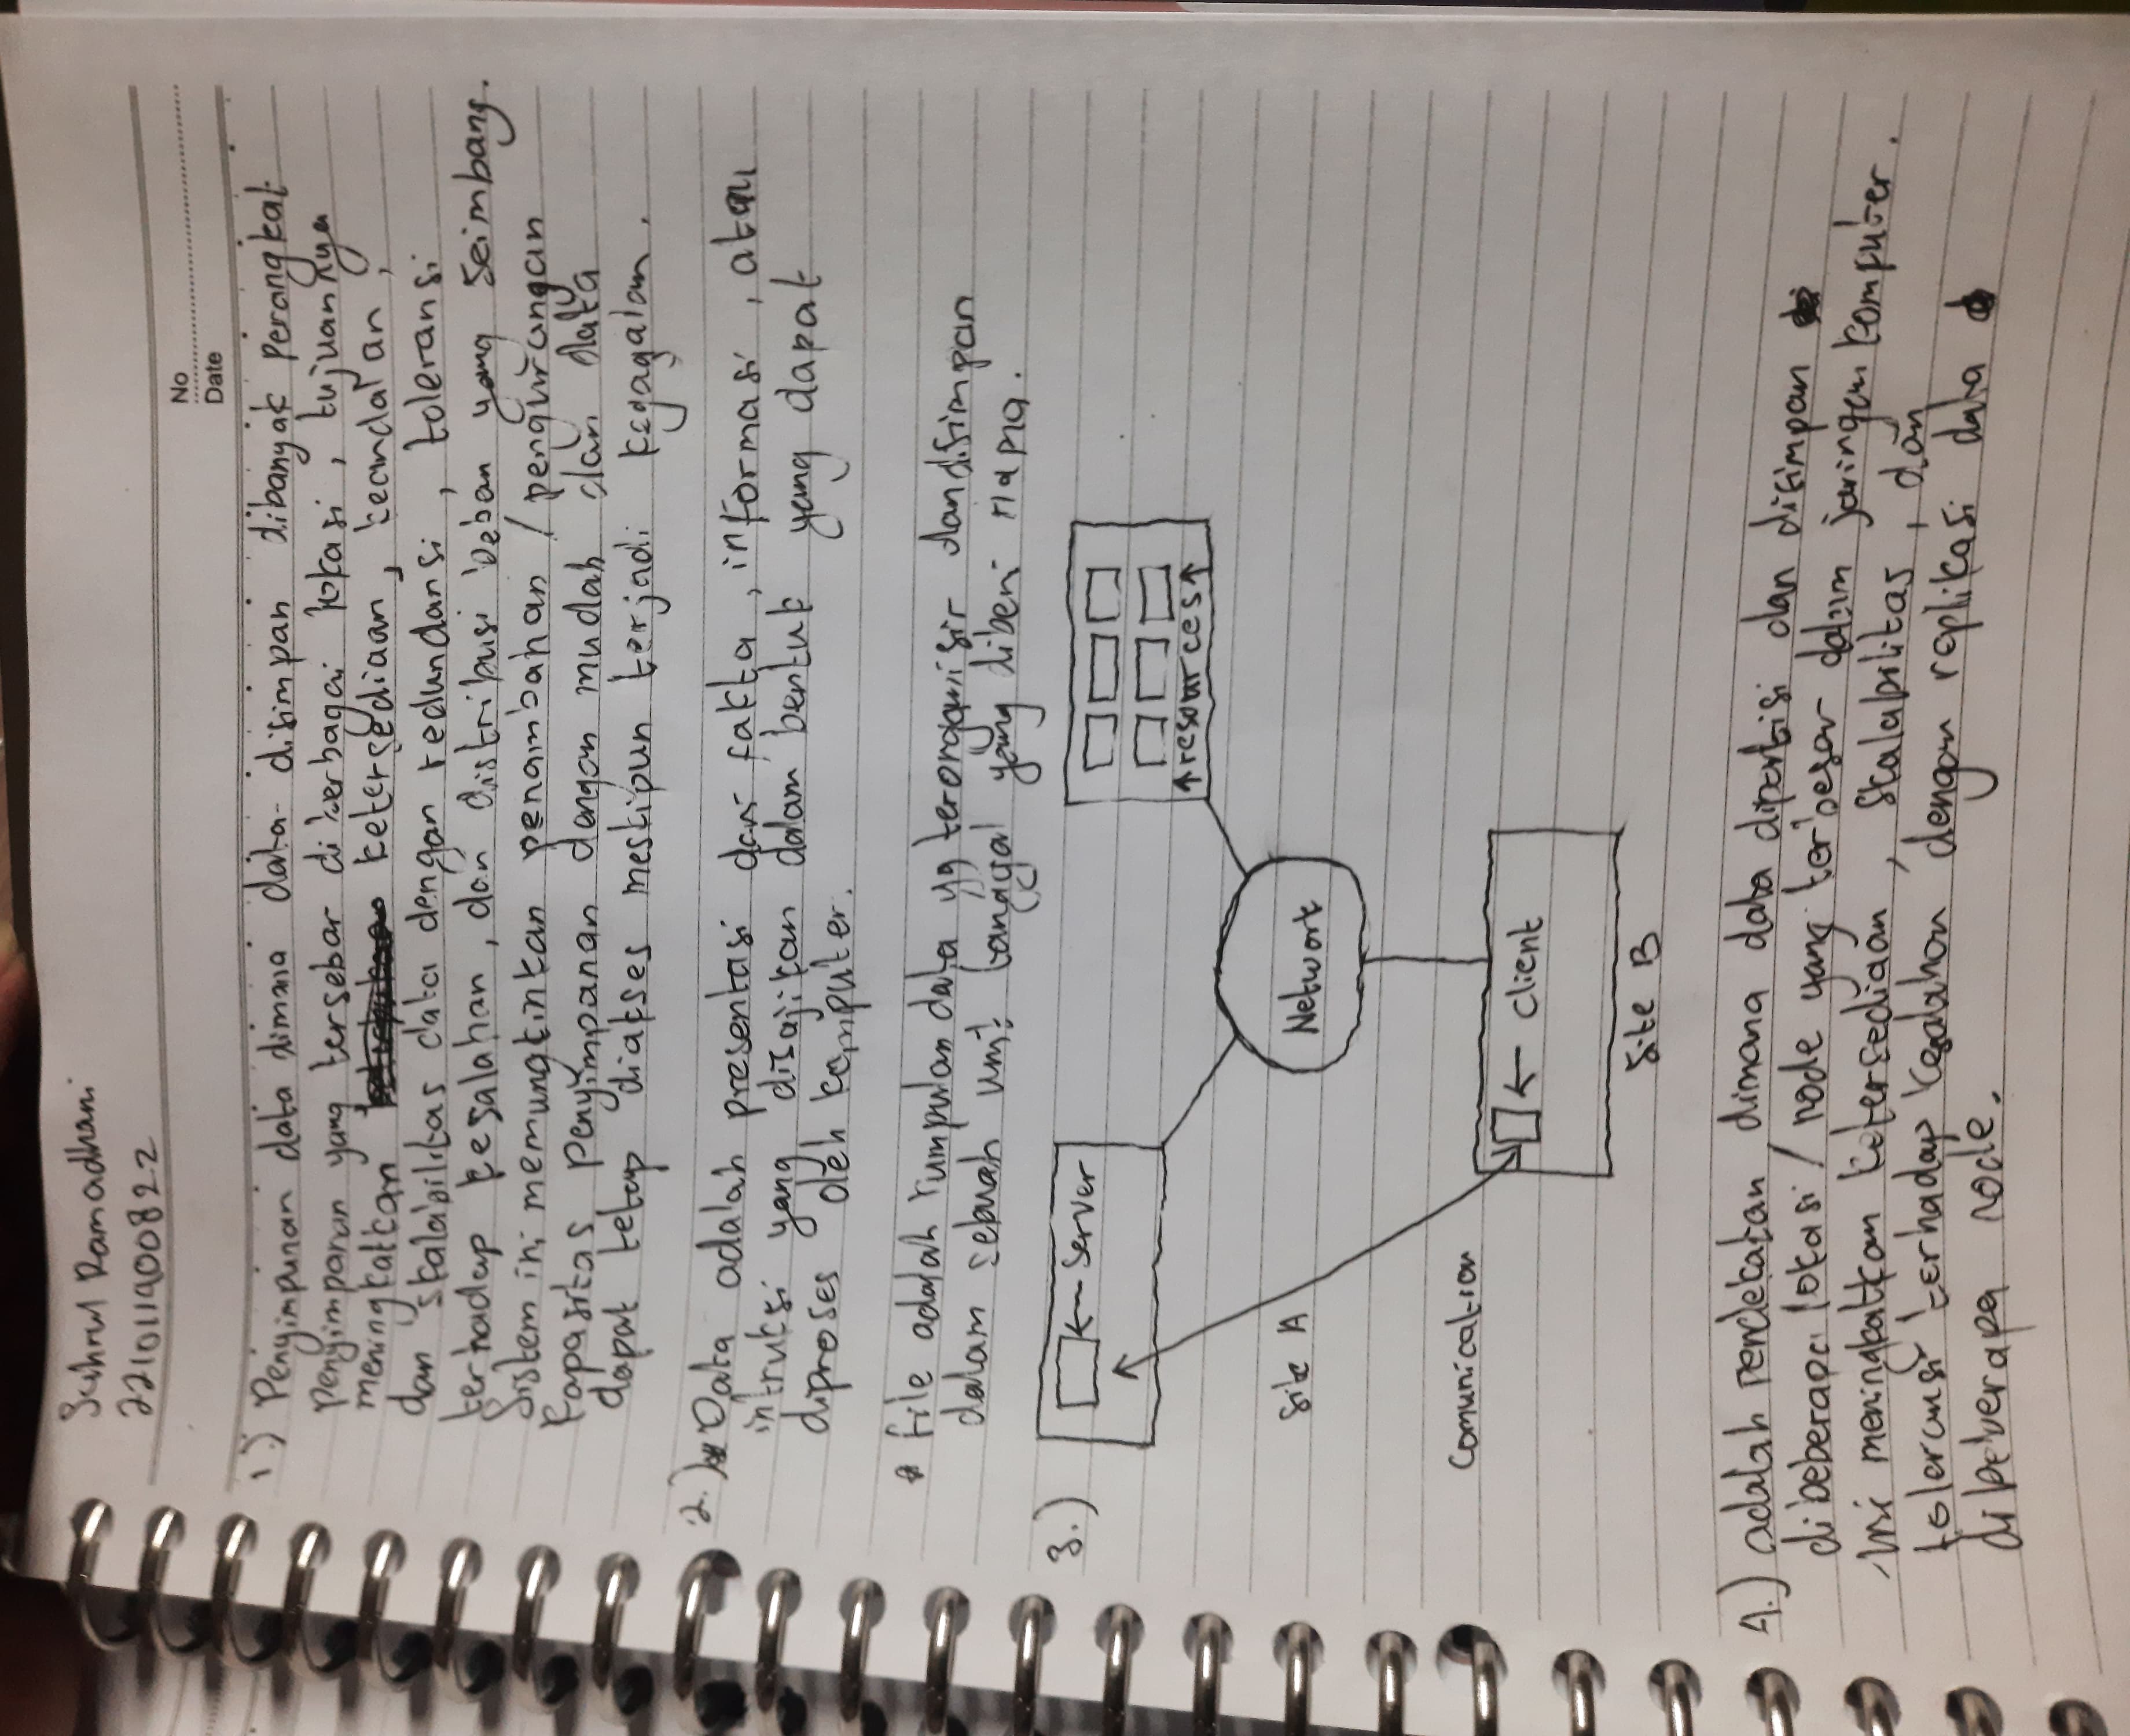 Ramadhani
221011400822
No
Date
1.) Penyimpanan data dimana data disimpan dibanyak perangkat
penyimpanan yang tersebar di berbagai lokasi, tujuannya
meningkatkan ketersediaan, keandalan,
dan skalabilitas data dengan redundansi, toleransi
terhadap kesalahan, dan distribusi beban yang seimbang.
Sistem ini memungkinkan penambahan / pengurangan
kapasitas penyimpanan dengan mudah dan data
dapat tetap diakses meskipun terjadi kegagalan.
2.) Data adalah presentasi dari fakta, informasi, atau
intruksi yang disajikan dalam bentuk yang dapat
diproses oleh komputer.
* file adalah kumpulan data yg terorganisir dan disimpan
dalam sebuah unit tanggal yang diberi nama.
3.)
← Server
↑ resources ↑
Network
Site A
Comunication
← Client
Site B
4.) adalah pendekatan dimana data dipartisi dan disimpan
dibeberapa lokasi / node yang terbesar dalam jaringan komputer.
Ini meningkatkan ketersediaan, skalabilitas, dan
toleransi terhadap kesalahan dengan replikasi data
dibeberapa node.